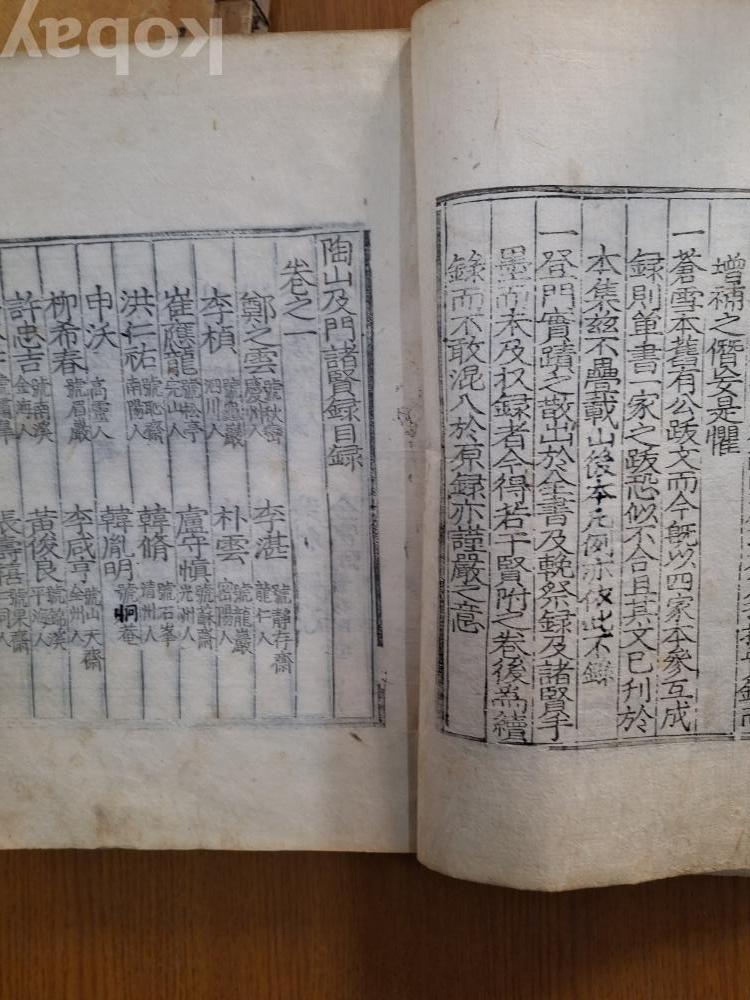 kobay
增補之僭妄是懼
一蒼雪本舊有公跋文而今旣以四家本參互成
録則並書一家之跋恐似不合且其文已刊於
本集玆不疊載山後本凡例亦依此不録
一登門實蹟之散出於全書及輓祭録及諸賢手
墨而未及収録者今得若干賢附之卷後爲續
録而不敢混入於原録亦謹嚴之意
陶山及門諸賢録目録
卷之一
鄭之雲 號秋巒 慶州人 李湛 號靜存齋 龍仁人
李楨 號龜巖 泗川人 朴雲 號龍巖 密陽人
崔應龍 號松亭 完山人 盧守愼 號蘇齋 光州人
洪仁祐 號耻齋 南陽人 韓脩 號石峯 淸州人
申沃 高靈人 韓胤明 號峒菴
柳希春 號眉巖 李咸亨 號山天齋 全州人
許忠吉 號南溪 金海人 黃俊良 號錦溪 平海人
張壽禧 號果齋